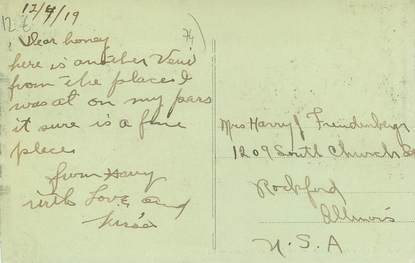 12/4/19
Dear honey
here is another View
from the places I
was at on my pass
it sure is a fine
place
from Harry
with Love and
Mrs Harry Freudenberg
1209 South Church St
Rockford
Illinois
U.S.A